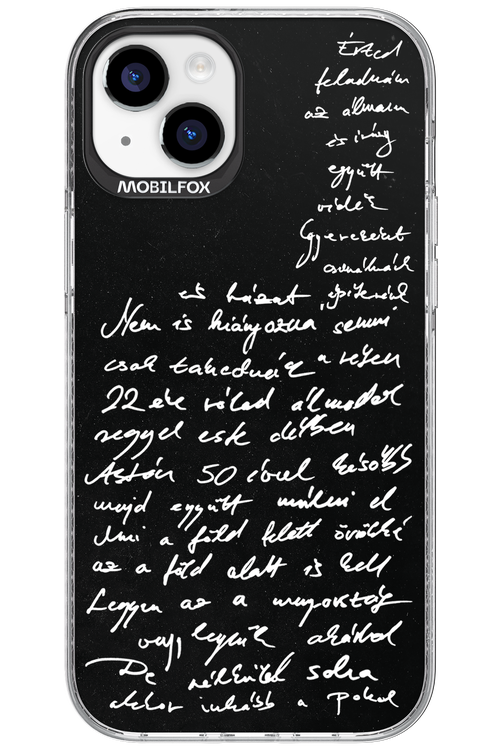 MOBILFOX
Érted
feladnám
az álmaim
és
együtt
Gyerekeket
csinálnánk
és házat építenénk
Nem is hiányozna semmi
csak
22 éve rólad álmodok
reggel este délben
Aztán 50 évvel később
majd együtt múlni el
Ami a föld felett örökké
az a föld alatt is kell
Legyen az a mennyország
vagy legyünk akárhol
De nélküled soha
akkor inkább a Pokol